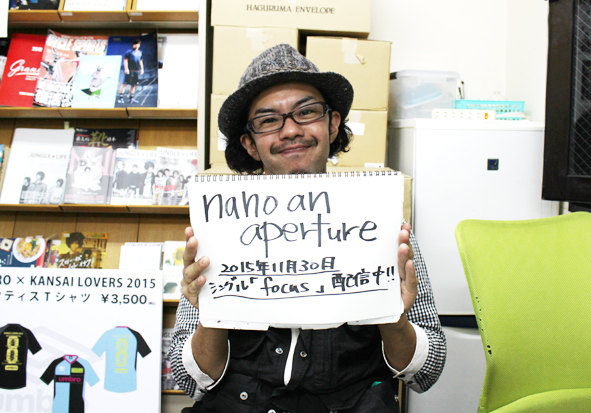 HAGURUMA ENVELOPE
JUNGLE LIFE
nano an
aperture
2015年11月30日
シングル「focus」配信中!!
RO × KANSAI LOVERS 2015
ティスTシャツ ¥3,500
8
8
umbro
umbro